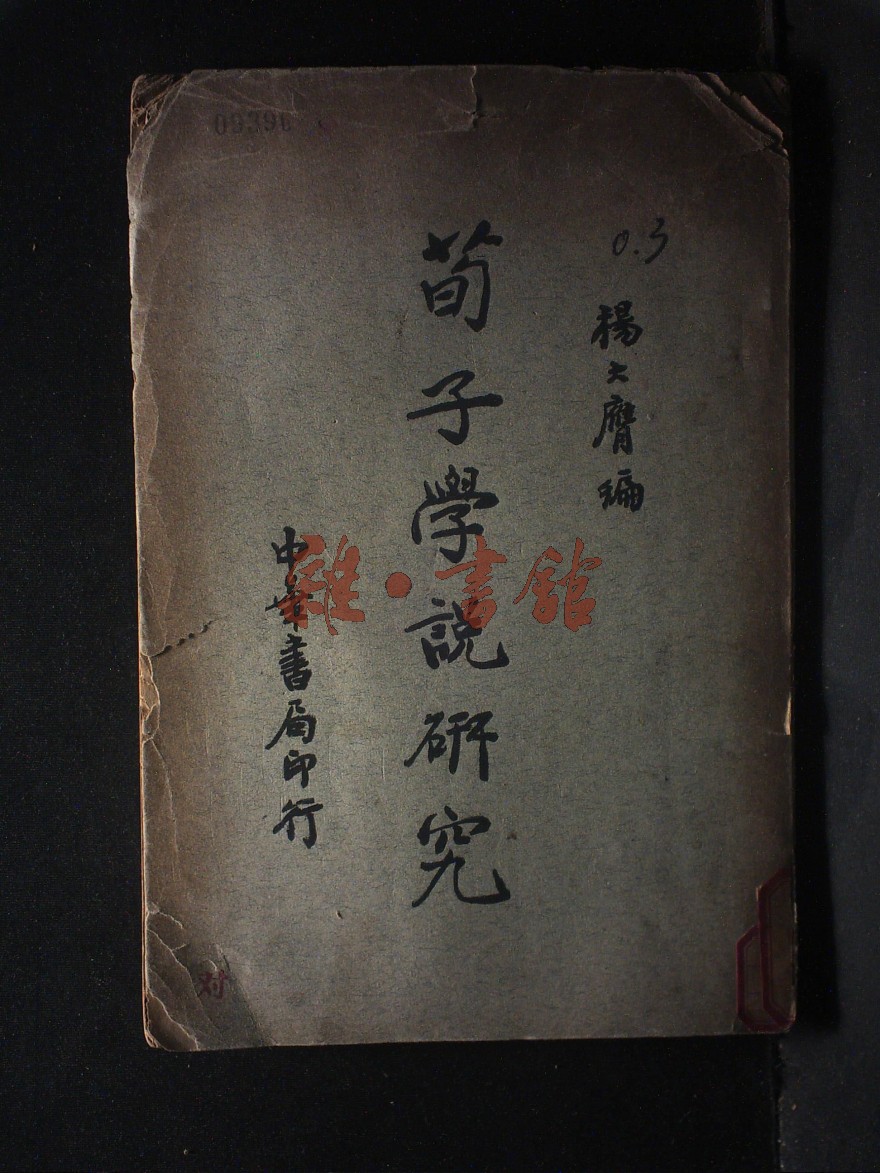 0.3
楊大膺編
荀子學說研究
中華書局印行
雜·書館
对